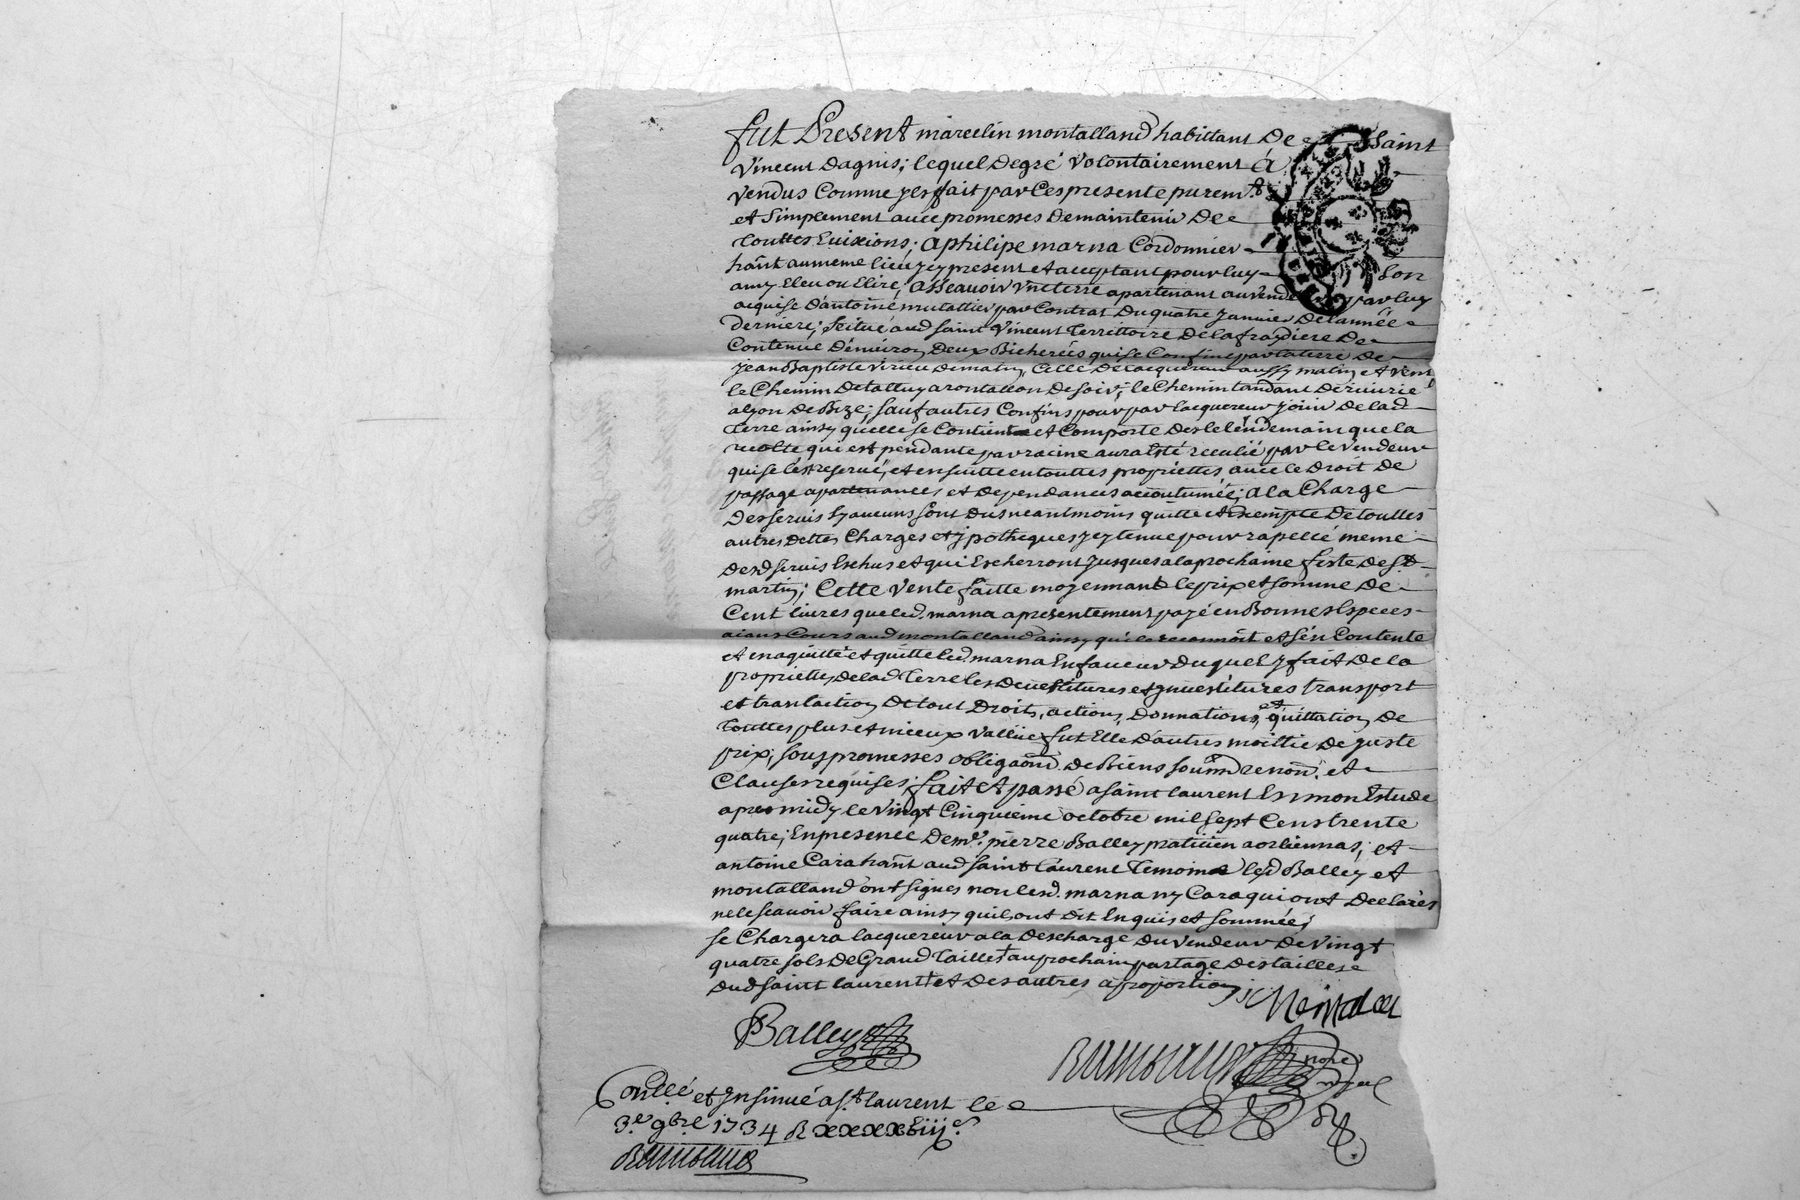 fut Present marcelin montalland habittant De Saint
Vincent dagnis; lequel degré volontairement à
vendus Comme yl fait par Ces presente purem.t
et simplement avec promesses demaintenir De
touttes Evixions; aphilipe marna Cordonnier
hãnt au meme lieu ycy present et acceptant pour luy son
amy Eleu ou Elire, aScavoir une terre apartenant au vende par luy
acquise d'antoine mutattier par Contrat Du quatre Janvier De lannée
derniere; Scitué aud saint Vincent territtoire De la fraydiere De
Contenüe Denviron Deux Bicherées qui se Confine par la terre De
jean Baptiste virieu de matin, Celle De lacquereur aussy matin et vent
le Chemin de tattuy a rontallon de soir; le Chemin tandant De rivirie
alyon de Bize; sauf autres Confins pour par lacquereur jouir de lad
terre ainsy quelle se Contient et Comporte des le lendemain que la
recolte qui est pendante par racine aura esté receulié par le vendeur
qui se l'est reservé, et ensuitte en touttes propriettes avec le Droit de
passage apartenances et dependances accoutumée; a la Charge
des servis sy aucuns sont dus neantmoins quitte et exempte De touttes
autres dettes Charges et ypotheques ycy tenue pour rapellé meme
desd servis Eschus et qui Escherront jusques a la prochaine feste de S.t
martin; Cette vente faitte moyennant le prix et somme De
Cent livres que led. marna a presentement payé en Bonnes Especes
aians Cours aud montalland ainsy qu'il a reconnoit et s'en Contente
et en a quitté et quitte led. marna En faveur Duquel y fait De la
propriette, de lad terre les devestitures et ynvestitures transport
et tranlaction de tout Droits, actions, Donnations, et quittation De
touttes plus et mieux vallüe fut Elle D'autres moittie De juste
prix; sous promesses obligãon. de Biens soum. renon. et
Clauses requises; fait et passé a saint laurent En mon Estude
apres midy le vingt Cinquieme octobre mil sept Cens trente
quatre; En presence De me. pierre Balley praticien a orliennas; et
antoine Cara hãnt aud saint laurent temoins lesd Balley et
montalland ont signes non lesd. marna ny Cara qui ont Declarés
ne le scavoir faire ainsy quils ont dit Enquis et sommée;
se Chargera lacquereur a la Descharge du vendeur De vingt
quatre sols De Grand taille au prochain partage des tailles
dud saint laurent et des autres a proportion;
Balley
Conllé et Insinué a s.t laurent le
3.e 9bre 1734 R xxxxviij s.